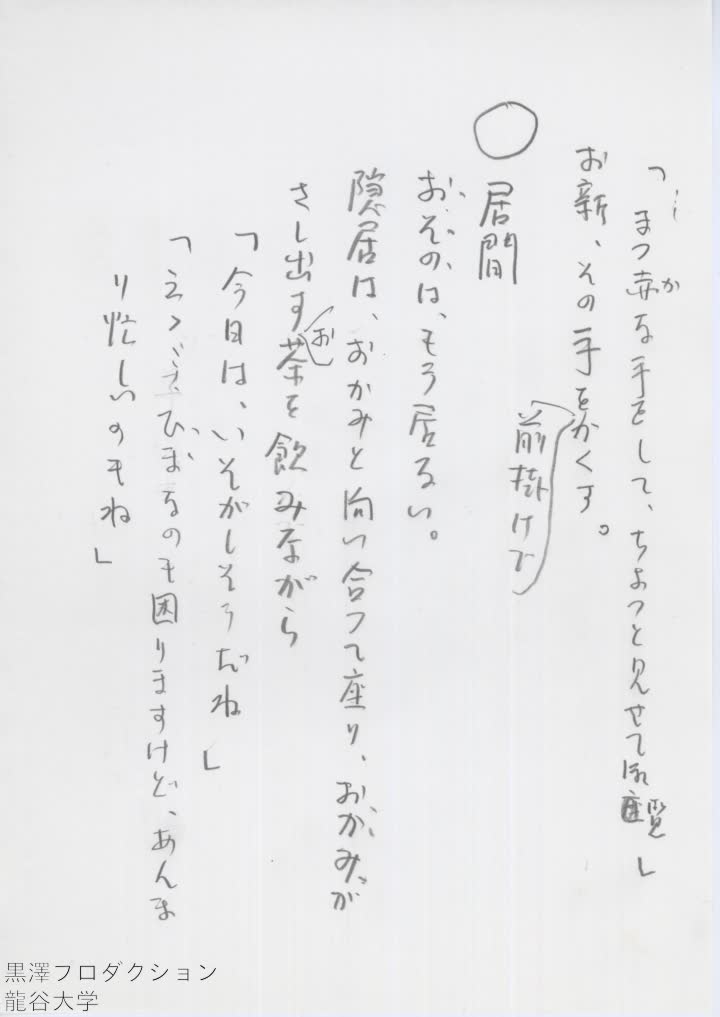 「…まつ赤な手をして、ちよつと見せて御覧」
お新、その手を前掛けでかくす。
○居間
おそのは、もう居ない。
隠居は、おかみと向い合つて座り、おかみが
さし出すお茶を飲みながら
「今日は、いそがしそうだね」
「えゝ、ひまなのも困りますけど、あんま
り忙しいのもね」
黒澤プロダクション
龍谷大学